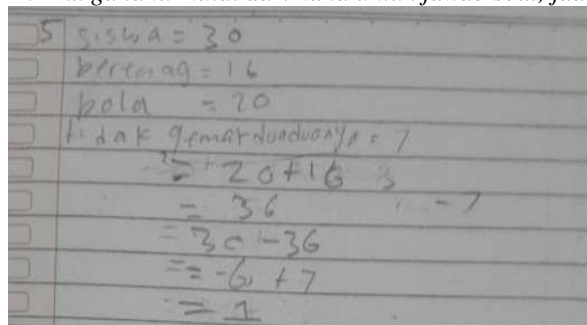 5 siswa = 30
berenag = 16
bola = 20
tidak gemar duaduanya = 7
= 20 + 16
= 36 - 7
= 30 - 36
= -6 + 7
= 1